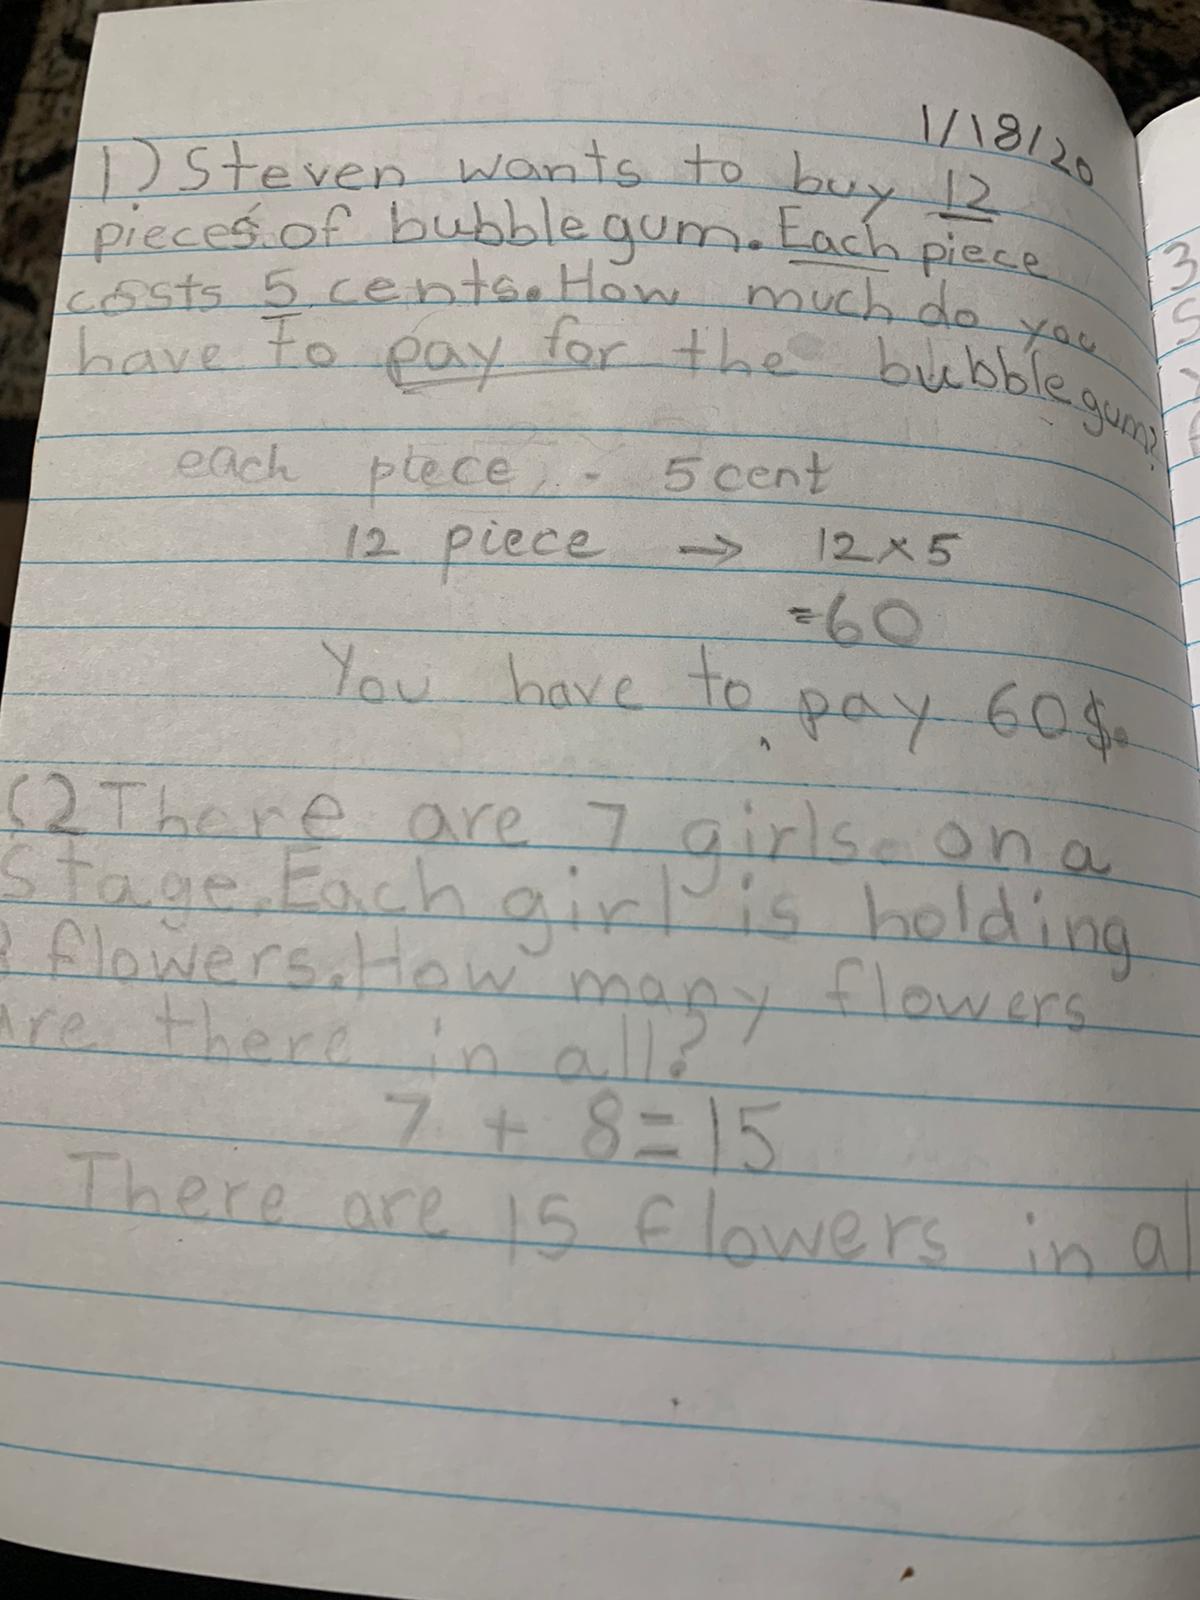 1/18/20
1) Steven wants to buy 12
pieces of bubble gum. Each piece
costs 5 cents. How much do you
have to pay for the bubble gum?
each piece - 5 cent
12 piece → 12 x 5
=60
You have to pay 60$.
(2 There are 7 girls on a
stage. Each girl is holding
flowers. How many flowers
Are there in all?
7 + 8 = 15
There are 15 flowers in al
3